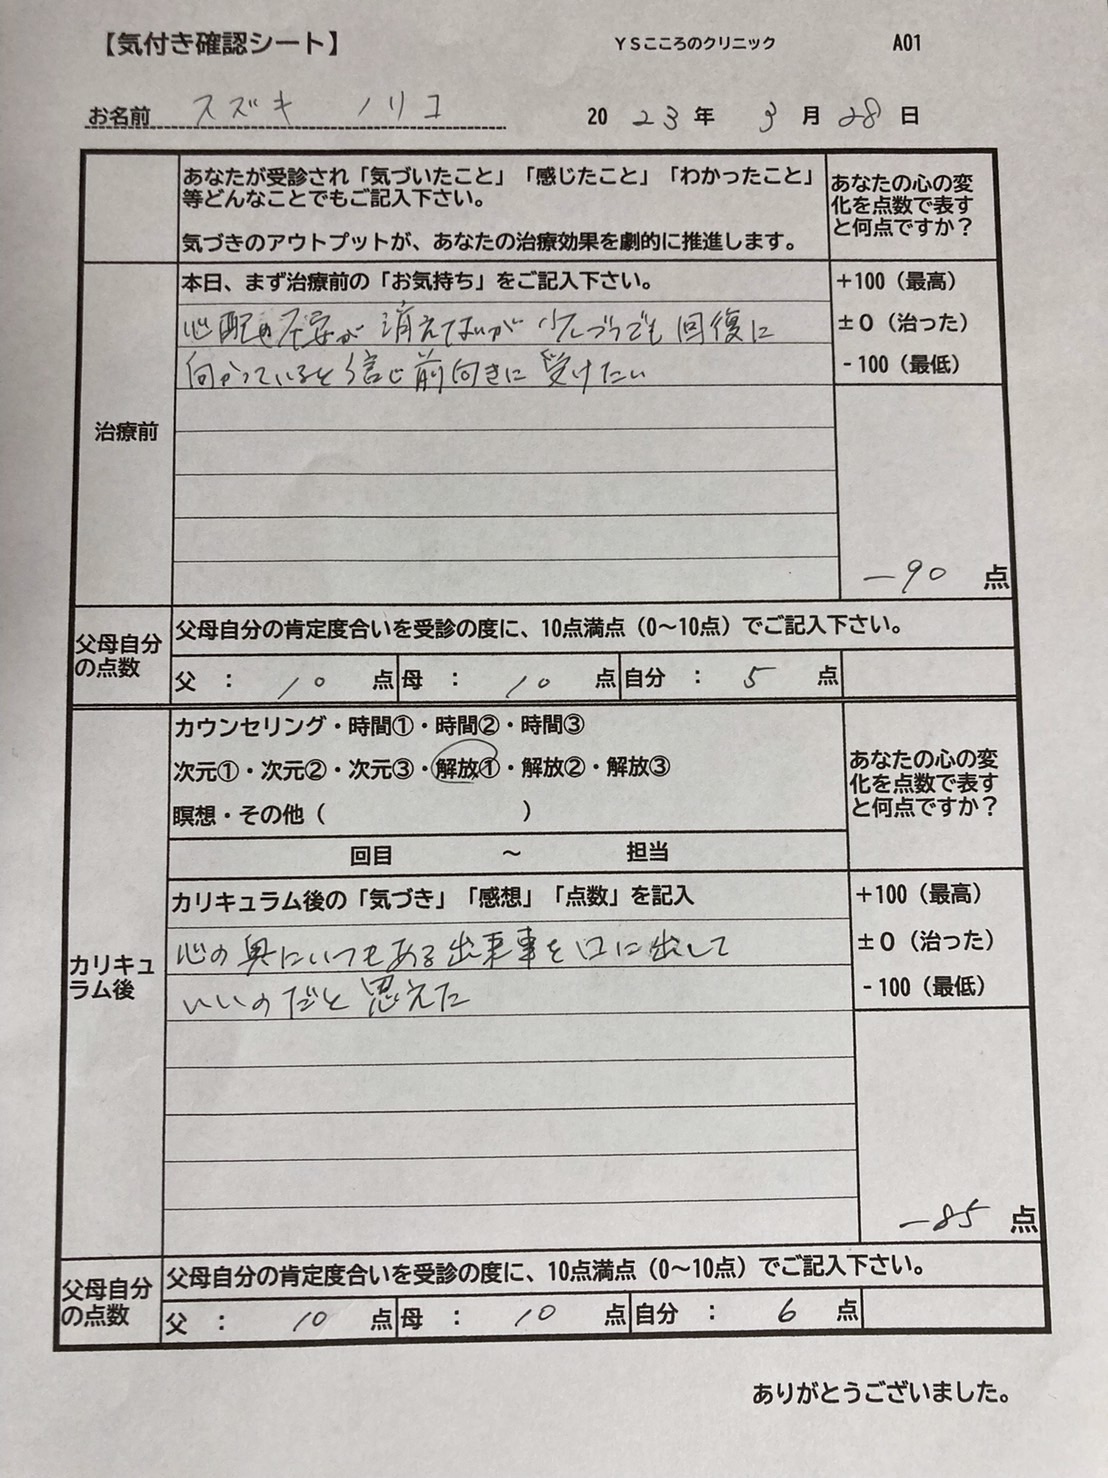 【気付き確認シート】 YSこころのクリニック A01
お名前 スズキ ノリコ 2023年 3月 28日
あなたが受診され「気づいたこと」「感じたこと」「わかったこと」
等どんなことでもご記入下さい。
気づきのアウトプットが、あなたの治療効果を劇的に推進します。
あなたの心の変
化を点数で表す
と何点ですか？
治療前
本日、まず治療前の「お気持ち」をご記入下さい。
心配や不安が消えてないが少しづつでも回復に
向かっていると信じ前向きに受けたい
+100（最高）
±0（治った）
-100（最低）
-90 点
父母自分
の点数
父母自分の肯定度合いを受診の度に、10点満点（0～10点）でご記入下さい。
父 ： 10 点 母 ： 10 点 自分 ： 5 点
カリキュ
ラム後
カウンセリング・時間①・時間②・時間③
次元①・次元②・次元③・解放①・解放②・解放③
瞑想・その他（ ）
回目 ～ 担当
あなたの心の変
化を点数で表す
と何点ですか？
カリキュラム後の「気づき」「感想」「点数」を記入
心の奥にいつもある出来事を口に出して
いいのだと思えた
+100（最高）
±0（治った）
-100（最低）
-85 点
父母自分
の点数
父母自分の肯定度合いを受診の度に、10点満点（0～10点）でご記入下さい。
父 ： 10 点 母 ： 10 点 自分 ： 6 点
ありがとうございました。